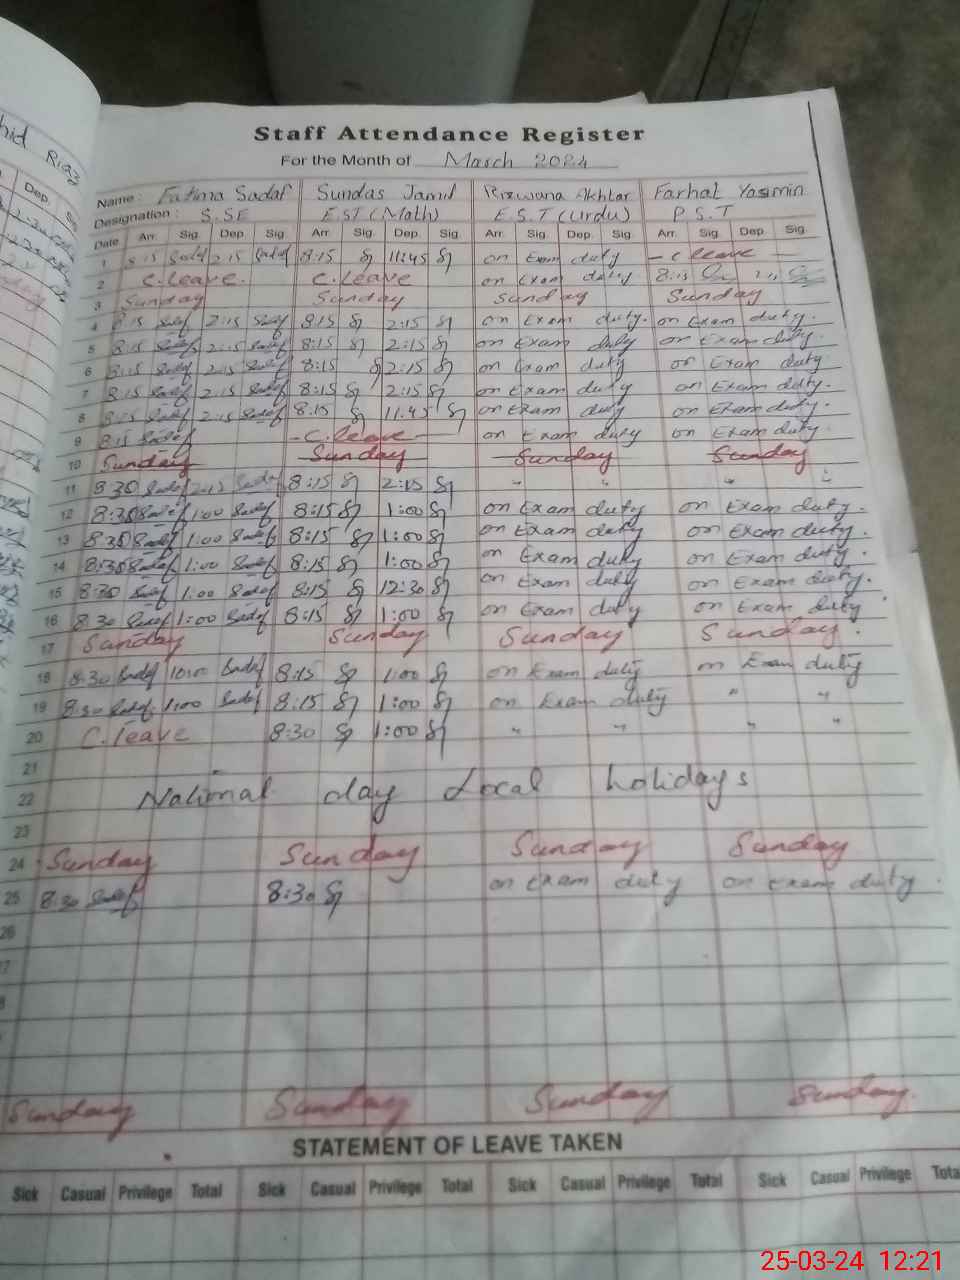 hid Riaz
Dep.
Staff Attendance Register
For the Month of March 2024
Name: Fatima Sadaf Sundas Jamil Rizwana Akhtar Farhat Yasmin
Designation: S.SE E.ST (Math) E.S.T (Urdu) P.S.T
Date Arr. Sig. Dep. Sig. Arr. Sig. Dep. Sig. Arr. Sig. Dep. Sig. Arr. Sig. Dep. Sig.
1 8:15 Sadaf 2:15 Sadaf 8:15 SJ 11:45 SJ on Exam duty - C leave -
2 C. leave. C. leave on Exam duty. 8:15
3 Sunday Sunday Sunday Sunday
4 8:15 Sadaf 2:15 Sadaf 8:15 SJ 2:15 SJ on Exam duty. on Exam duty.
5 8:15 Sadaf 2:15 Sadaf 8:15 SJ 2:15 SJ on Exam duty on Exam duty.
6 8:15 Sadaf 2:15 Sadaf 8:15 SJ 2:15 SJ on Exam duty on Exam duty
7 8:15 Sadaf 2:15 Sadaf 8:15 SJ 2:15 SJ on Exam duty on Exam duty.
8 8:15 Sadaf 2:15 Sadaf 8:15 SJ 11:45 SJ on Exam duty on Exam duty.
9 8:15 Sadaf - C. leave - on Exam duty on Exam duty.
10 Sunday Sunday Sunday Sunday
11 8:30 Sadaf 2:15 Sadaf 8:15 SJ 2:15 SJ " " " "
12 8:30 Sadaf 1:00 Sadaf 8:15 SJ 1:00 SJ on Exam duty on Exam duty.
13 8:30 Sadaf 1:00 Sadaf 8:15 SJ 1:00 SJ on Exam duty on Exam duty.
14 8:30 Sadaf 1:00 Sadaf 8:15 SJ 1:00 SJ on Exam duty on Exam duty.
15 8:30 Sadaf 1:00 Sadaf 8:15 SJ 12:30 SJ on Exam duty on Exam duty.
16 8:30 Sadaf 1:00 Sadaf 8:15 SJ 1:00 SJ on Exam duty on Exam duty
17 Sunday Sunday Sunday Sunday.
18 8:30 Sadaf 10:00 Sadaf 8:15 SJ 1:00 SJ on Exam duty on Exam duty
19 8:30 Sadaf 1:00 Sadaf 8:15 SJ 1:00 SJ on Exam duty " "
20 C. leave 8:30 SJ 1:00 SJ " " " "
21
22 National day Local holidays
23
24 Sunday Sunday Sunday Sunday
25 8:30 Sadaf 8:30 SJ on Exam duty on Exam duty.
26
7
8
Sunday Sunday Sunday Sunday.
STATEMENT OF LEAVE TAKEN
Sick Casual Privilege Total Sick Casual Privilege Total Sick Casual Privilege Total Sick Casual Privilege Tota
25-03-24 12:21